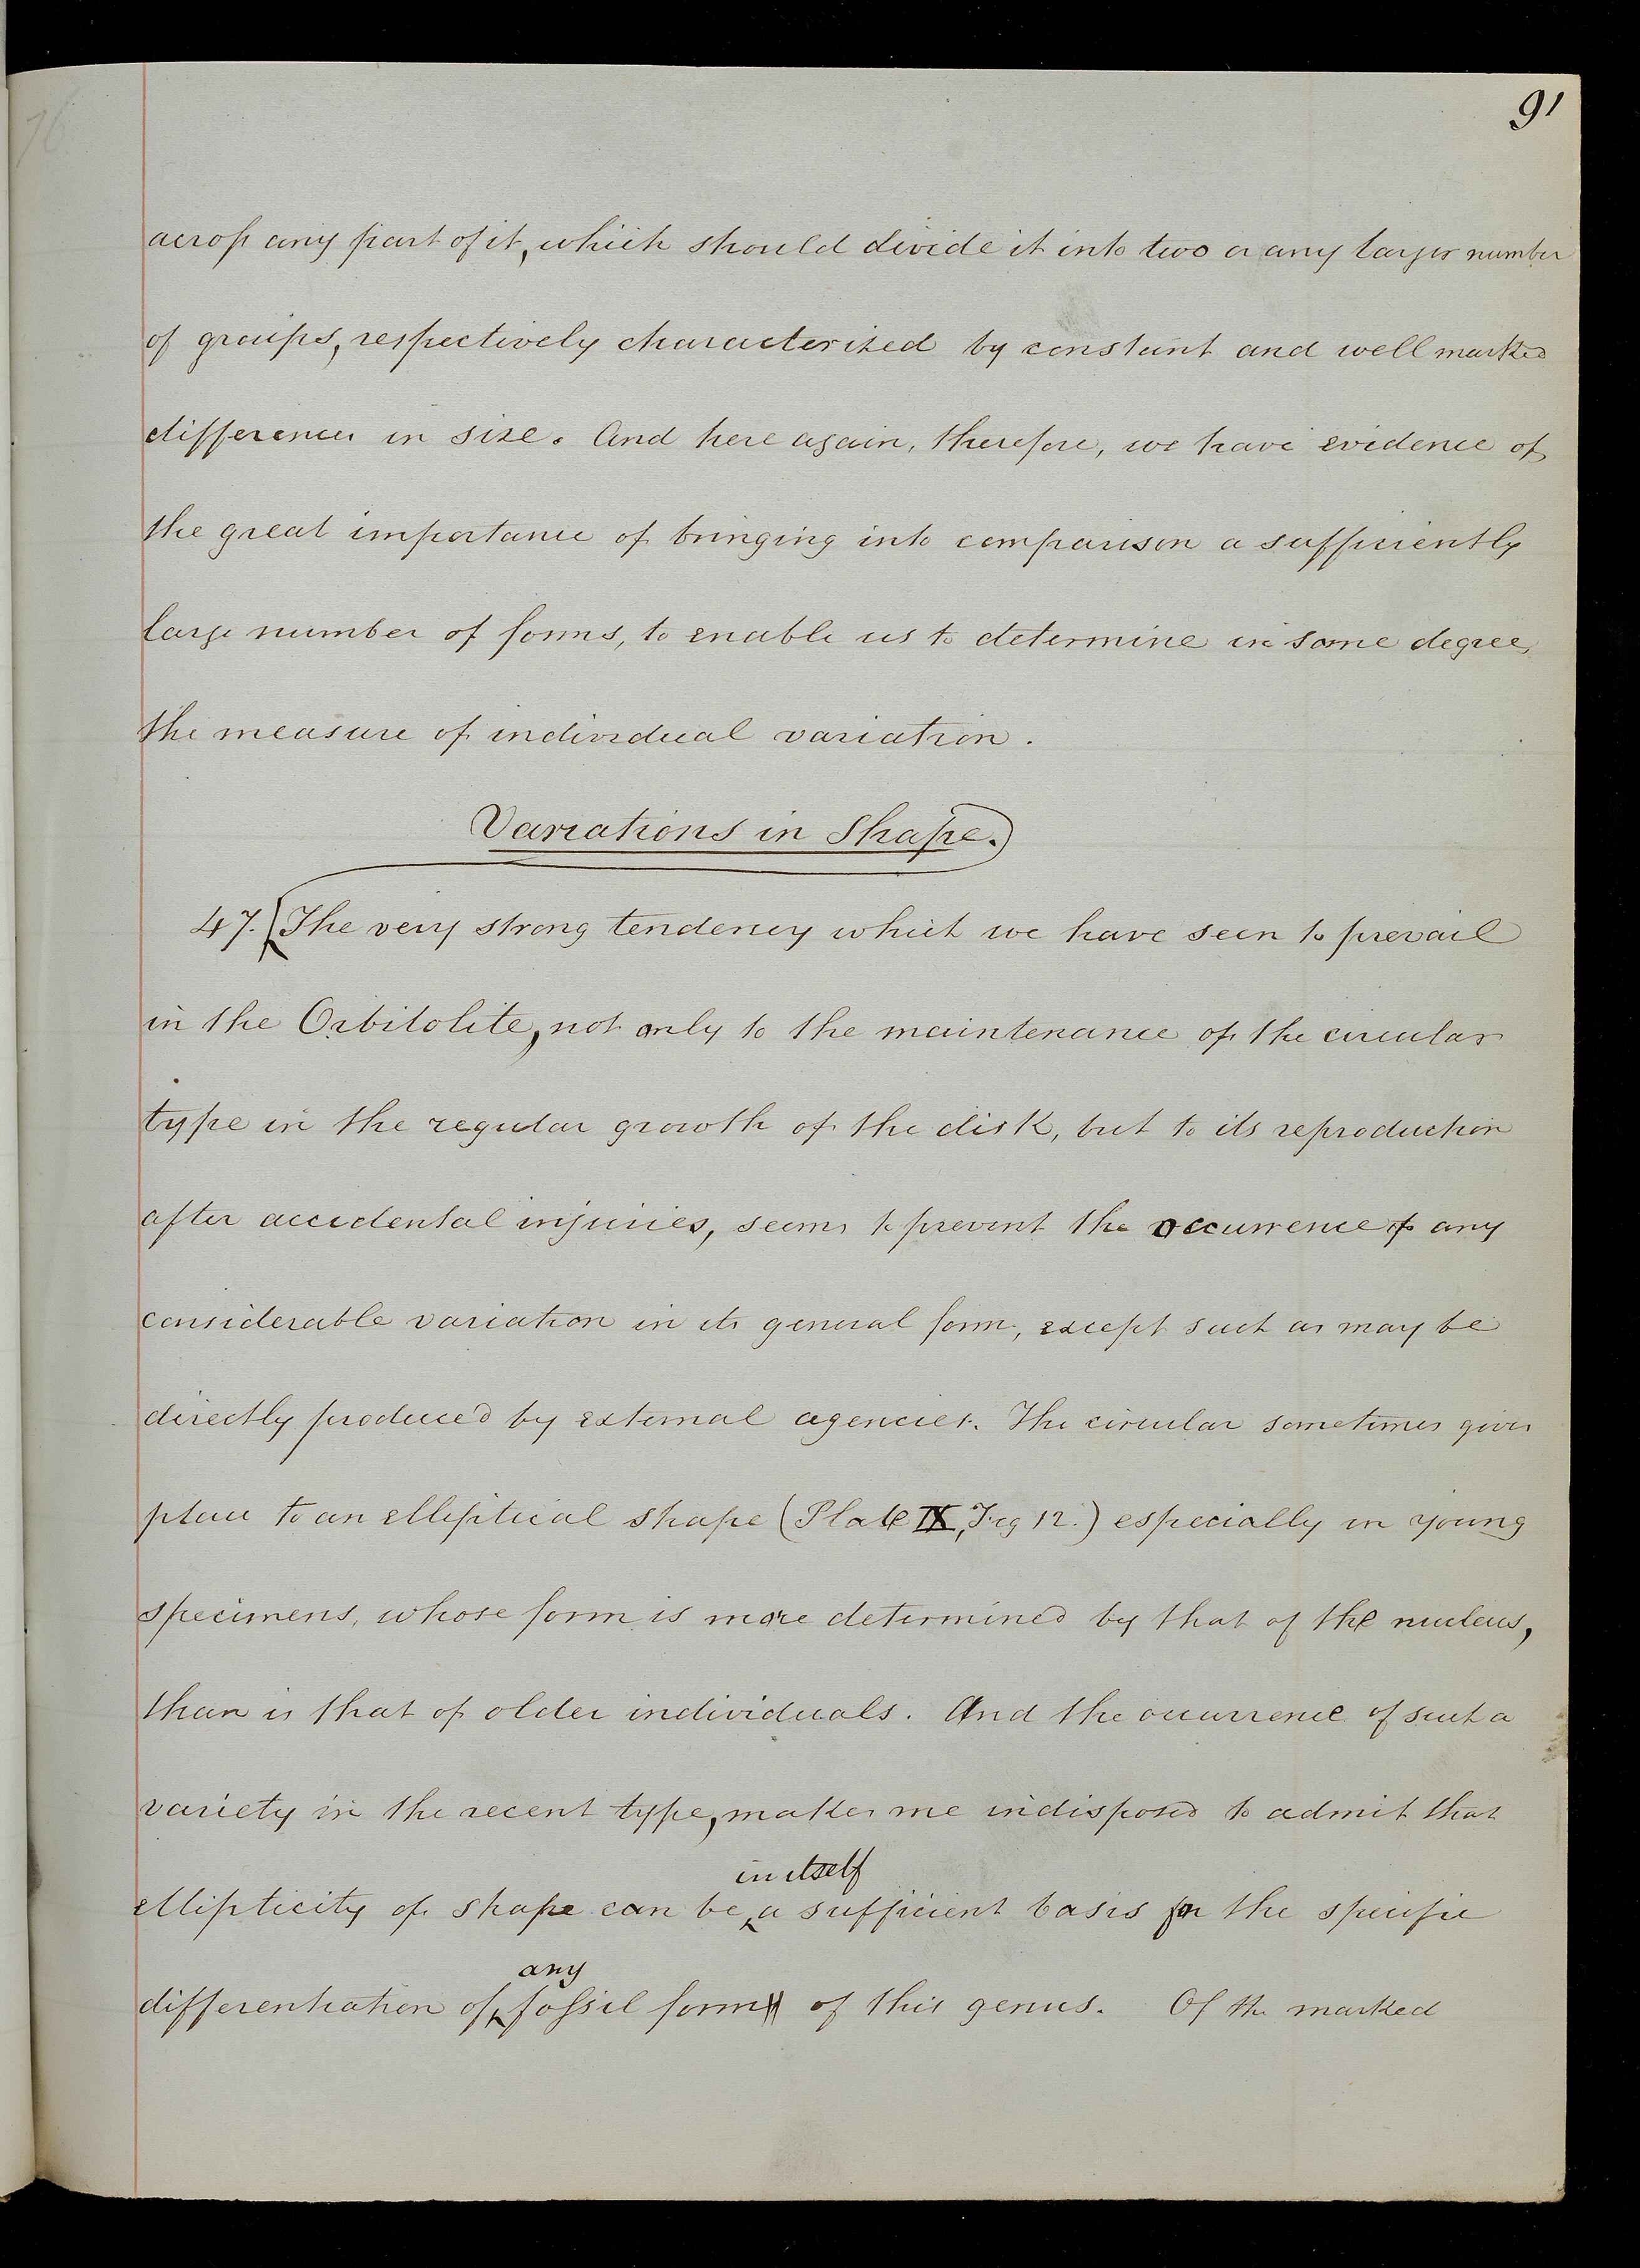 91
across any part of it, which should divide it into two or any larger number
of groups, respectively characterized by constant and well marked
differences in size. And here again, therefore, we have evidence of
the great importance of bringing into comparison a sufficiently
large number of forms, to enable us to determine in some degree
the measure of individual variation.
Variations in Shape.
47. The very strong tendency which we have seen to prevail
in the Orbitolite, not only to the maintenance of the circular
type in the regular growth of the disk, but to its reproduction
after accidental injuries, seems to prevent the occurrence of any
considerable variation in its general form, except such as may be
directly produced by external agencies. The circular sometimes gives
place to an elliptical shape (Plate IX, Fig 12.) especially in young
specimens, whose form is more determined by that of the nucleus,
than is that of older individuals. And the occurrence of such a
variety in the recent type, makes me indisposed to admit that
in itself
ellipticity of shape can be a sufficient basis for the specific
any
differentiation of fossil form of this genus. Of the marked